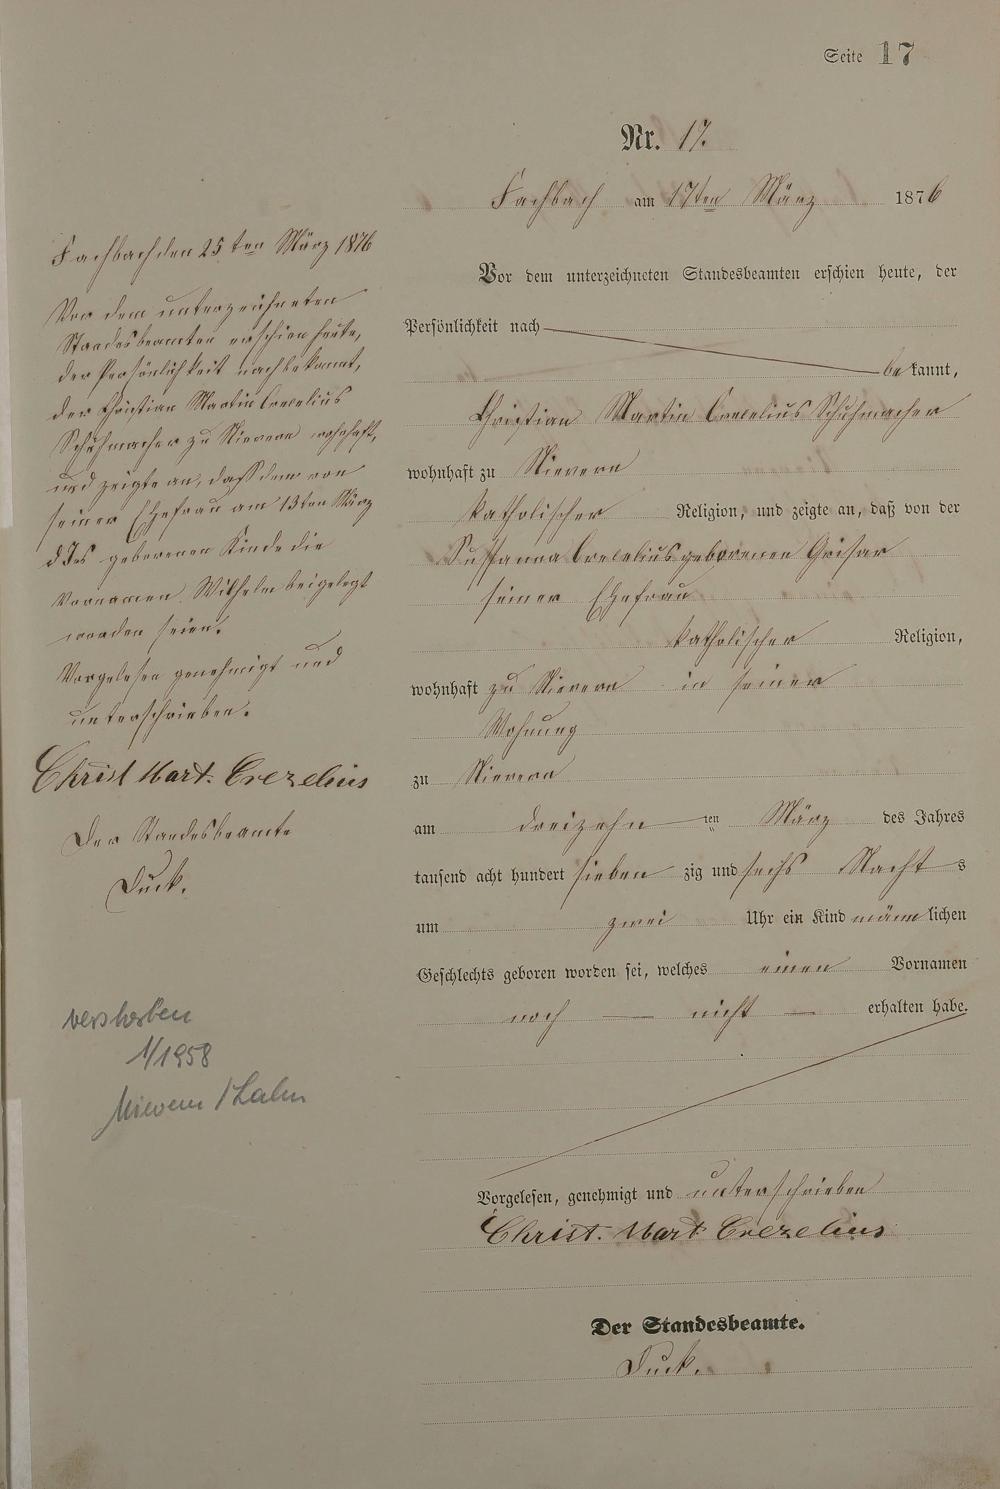 Seite 17
Nr. 17.
Fachbach am 17ten März 1876
Vor dem unterzeichneten Standesbeamten erschien heute, der
Persönlichkeit nach
bekannt,
Christian Martin Crecelius Schuhmacher
wohnhaft zu Nievern
katholischer Religion, und zeigte an, daß von der
Susanna Crecelius geborenen Grisar
seiner Ehefrau
katholischer Religion,
wohnhaft zu Nievern in seiner
Wohnung
zu Nievern
am dreizehnten März des Jahres
tausend acht hundert siebenzig und sechs Nachts
um zwei Uhr ein Kind männlichen
Geschlechts geboren worden sei, welches einen Vornamen
noch nicht erhalten habe.
Vorgelesen, genehmigt und unterschrieben
Christ. Mart Crezelius
Der Standesbeamte.
Duck.
Fachbach den 25ten März 1876
Vor dem unterzeichneten
Standesbeamten erschien heute,
der Persönlichkeit nach bekannt,
der Christian Martin Crecelius
Schuhmacher zu Nievern wohnhaft,
und zeigte an, daß dem von
seiner Ehefrau am 13ten März
d Js geborenen Kinde die
Vornamen Wilhelm beigelegt
worden seien.
Vorgelesen genehmigt und
unterschrieben.
Christ Mart. Crezelius
Der Standesbeamte
Duck.
verstorben
1/1958
Nievern / Lahn